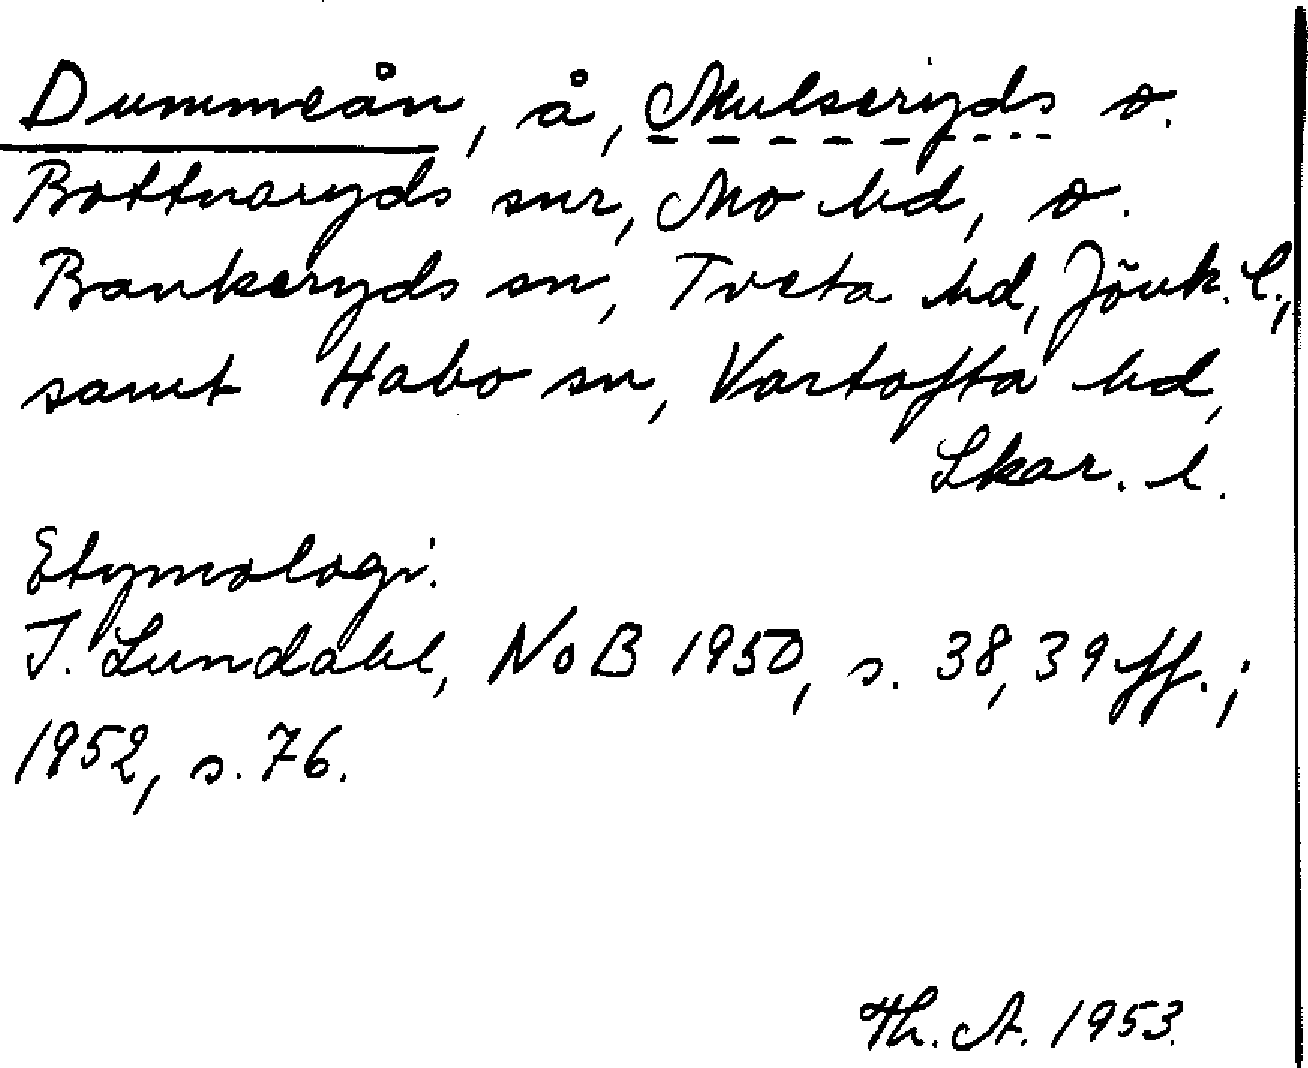 Dummeån, å, Mulseryds o.
Bottnaryds snr, Mo hd, o.
Bankeryds sn, Tveta hd, Jönk. l.,
samt Habo sn, Vartofta hd,
Skar. l.
Etymologi:
I. Lundahl, NoB 1950, s. 38, 39 ff.;
1952, s. 76.
Th. A. 1953.